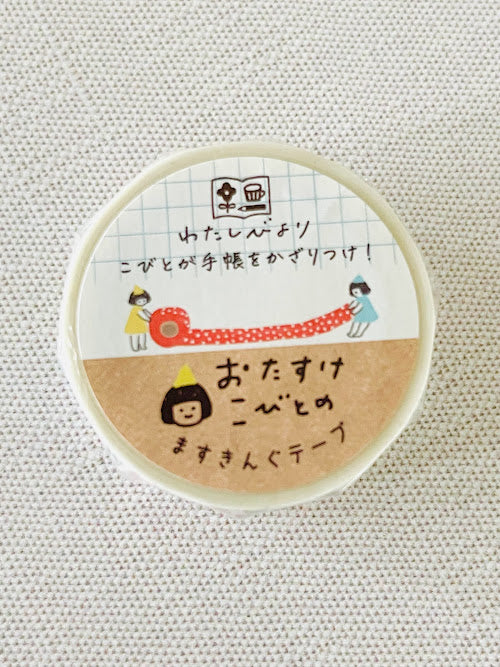 わたしびより
こびとが手帳をかざりつけ!
おたすけ
こびとの
ますきんぐテープ